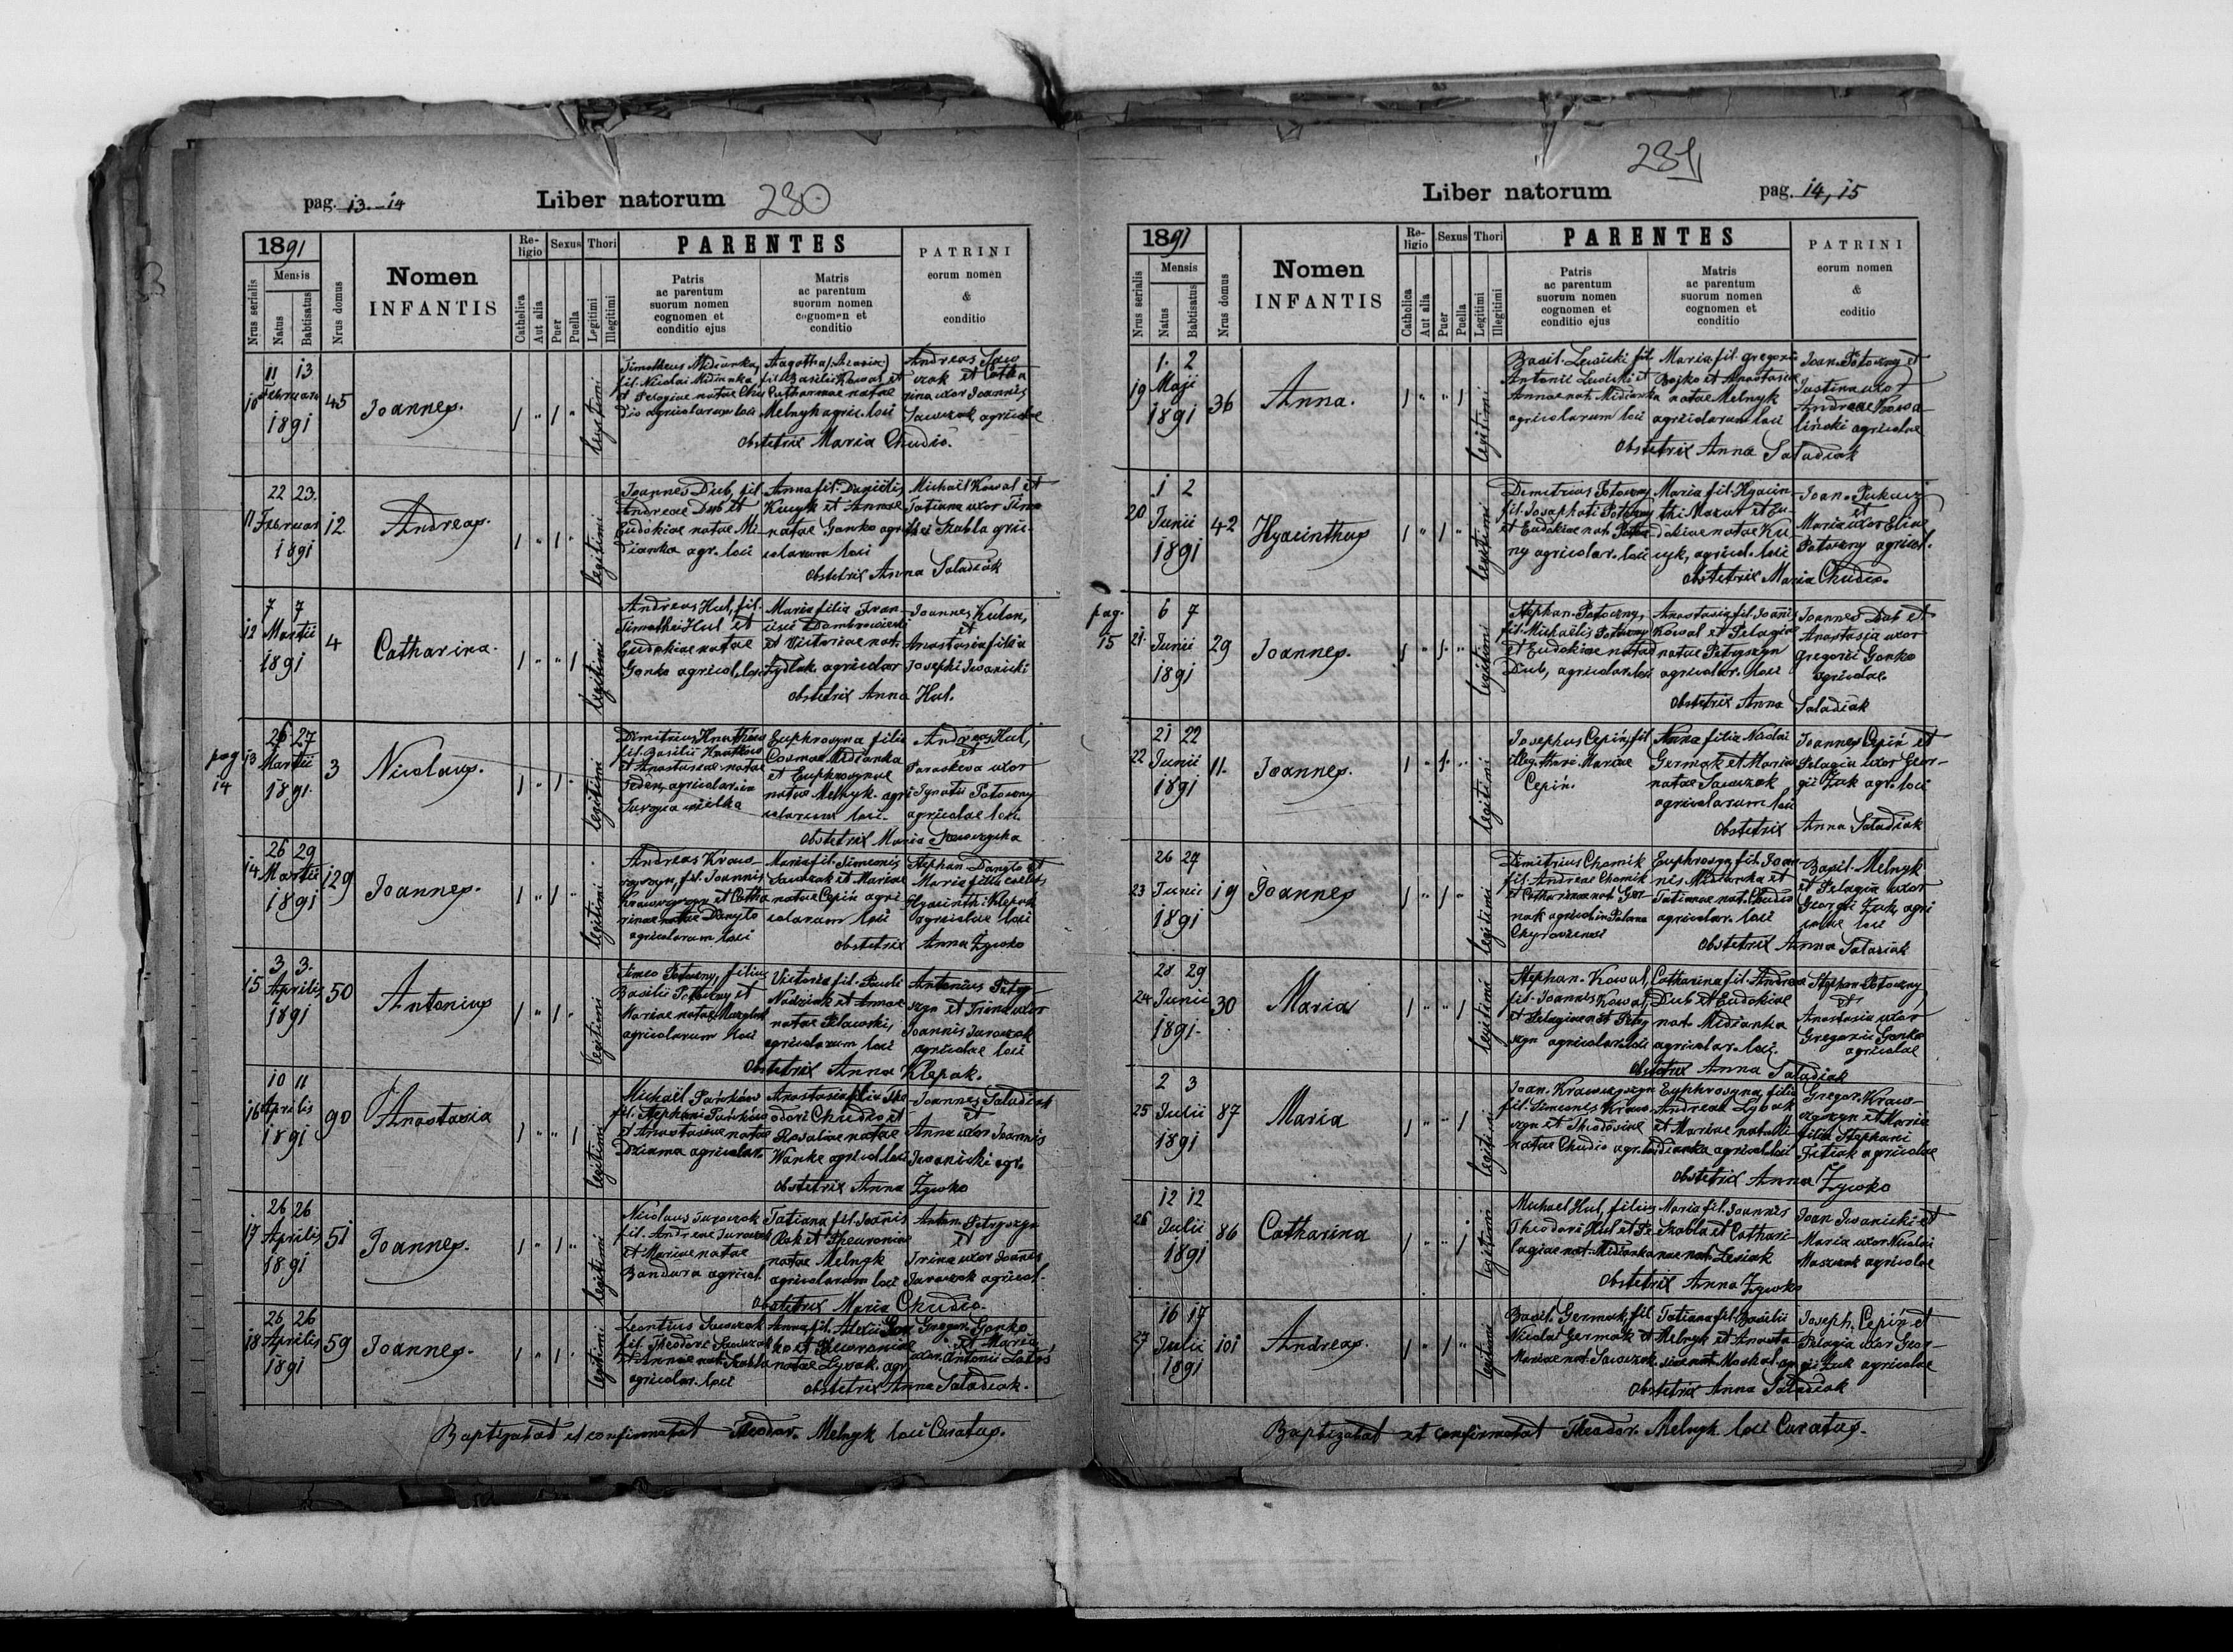 pag. 13.-14
Liber natorum
230
1891
Nrus serialis
Mensis
Natus
Babtisatus
Nrus domus
Nomen
INFANTIS
Re-
ligio
Catholica
Aut alia
Sexus
Puer
Puella
Thori
Legitimi
Illegitimi
PARENTES
Patris
ac parentum
suorum nomen
cognomen et
conditio ejus
Matris
ac parentum
suorum nomen
cognomen et
conditio
PATRINI
eorum nomen
&
conditio
10
11 13
Februarii
1891
45
Joannes.
legitimi
Timotheus Midianka,
fil. Nicolai Midianka
et Pelagiae natae Chu
dio agricolarum loci
Basilii Kowal et
Catharinae natae
Melnyk agric. loci
Andreas Saw
czak et Catha
rina uxor Joannis
Sawczak agricolae
obstetrix Maria Chudio.
11
22 23.
Februar
1891
12
Andreas.
legitimi
Joannes Dub, fil.
Andreae Dub et
Eudokiae natae Mi-
dianka agr. loci
Anna fil. Danielis
Kucyk et Annae
natae Gonko agri
colarum loci
Michael Kowal et
Tatiana uxor Timo
thei Szabla agric-
obstetrix Anna Saladiak
12
7 7
Martii
1891
4
Catharina.
legitimi
Andreas Hul, fil.
Timothei Hul et
Eudokiae natae
Gonko agricol. loci
Maria filia Fran-
cisci Dombrowiecki
et Victoriae nat.
Zydlak agricolar
Joannes Kulon,
et
Anastasia filia
Josephi Iwanicki
obstetrix Anna Hul.
pag
14
13
26 27
Martii
1891.
3
Nicolaus.
legitimi
Dimitrius Hnatkiw
fil. Basilii Hnatkiw
et Anastasiae natae
Feden, agricolar. in
Suszyca wielka
Euphrosyna filia
Cosmae Midianka
et Euphrosynae
natae Melnyk. agri
colarum loci-
Andreas Hul,
et
Paraskeva uxor
Ignatii Potoczny
agricolae loci.
obstetrix Maria Krawczyska
14
26 29
Martii
1891
129
Joannes.
legitimi
Andreas Kraw-
czyszyn, fil. Joannis
Krawczyszyn et Catha
rinae natae Danyło
agricolarum loci
Maria fil. Simeonis
Sawczak et Mariae
natae Cepin agri
colarum loci
Stephan Danyło et
Maria filia coelebs
Hyacinthi Klepak
agricolae loci
obstetrix Anna Żywko
15
3 3.
Aprilis
1891
50
Antonius
legitimi
Simeo Potoczny, filius
Basilii Potoczny et
Mariae natae
agricolarum loci
Victoria fil. Pauli
Nadziak et Annae
natae Pelawski,
agricolarum loci
Antonius Petry-
szyn et Irina uxor
Joannis Jaroszak
agricolae loci
obstetrix Anna Klepak.
16
10 11
Aprilis
1891
90
Anastasia
legitimi
Michaël Pańków
fil. Stephani Pańków
et Anastasiae natae
Dziama agricolar.
Anastasia filia The
odori Chudio et
Rosaliae natae
Wańke agricol. loci
Joannes Saladiak
et
Anna uxor Joannis
Iwanicki agr.
obstetrix Anna Żywko
17
26 26
Aprilis
1891
51
Joannes.
legitimi
Nicolaus Jaroszak
fil. Andreae Jaroszak
et Mariae natae
Bandura agricol.
Tatiana fil. Joannis
Rak et Theuroniae
natae Melnyk
agricolarum loci
Anton. Petryszyn
et
Irina uxor Joannis
Jaroszak agricol.
obstetrix Maria Chudio.
18
26 26
Aprilis
1891
59
Joannes.
legitimi
Leontius Sawczak
fil. Theodori Sawczak
et Annae nat. Szabla
agricolar. loci
Anna fil. Alexii Gon
ko et Theuroniae
natae Lysak. agr.
Gregor. Gonko
et Maria
uxor. Antonii Latos
obstetrix Anna Saladiak.
Baptizabat et confirmabat Theodor. Melnyk loci Curatus.
231
Liber natorum
pag. 14, 15
1891
Nrus serialis
Mensis
Natus
Babtisatus
Nrus domus
Nomen
INFANTIS
Re-
ligio
Catholica
Aut alia
Sexus
Puer
Puella
Thori
Legitimi
Illegitimi
PARENTES
Patris
ac parentum
suorum nomen
cognomen et
conditio ejus
Matris
ac parentum
suorum nomen
cognomen et
conditio
PATRINI
eorum nomen
&
coditio
19
1. 2
Maji
1891
36
Anna.
legitimi
Basil. Lewicki fil.
Antonii Lewicki et
Annae nat. Midianka
agricolarum loci
Maria fil. Gregorii
Bojko et Anastasiae
natae Melnyk
agricolarum loci
Joan. Potoczny et
Justina uxor
Andreae Kowa-
liński agricolae
obstetrix Anna Saladiak
20
1 2
Junii
1891
42
Hyacinthus
legitimi
Demetrius Potoczny
fil. Josaphati Potoczny
et Eudokiae nat. Potocz
ny agricolar. loci
Maria fil. Hyacin-
thi Mazur et Eu-
dokiae natae Ku-
cyk, agricol. loci
Joan. Pukacz
et
Maria uxor Eliae
Potoczny agricol.
obstetrix Maria Chudio.
pag.
15
21.
6 7
Junii
1891
29
Joannes.
legitimi
Stephan. Potoczny,
fil. Michaëlis Potoczny
et Eudokiae natae
Dub, agricolar. loci
Anastasia fil. Joannis
Kowal et Pelagiae
natae Petryszyn
agricolar. loci
Joannes Dub et
Anastasia uxor
Gregorii Gonko
agricolae.
obstetrix Anna Saladiak
22
21 22
Junii
1891
11.
Joannes.
legitimi
Josephus Cepiń, fil
illeg. thori Mariae
Cepiń.
Anna filia Nicolai
Germak et Mariae
natae Sawczak
agricolarum loci
Joannes Cepiń et
Pelagia uxor Geor-
gii Żuk agr. loci
obstetrix Anna Saladiak
23
26 27
Junii
1891
19
Joannes
legitimi
Dimitrius Chomik
fil. Andreae Chomik
et Catharinae nat. Gor-
nak agricol. in Polana
Chyrowiensi
Euphrosyn. fil. Joan
nis Midianka et
Tatianae nat. Chudio
agricolar. loci
Basil. Melnyk
et Pelagia uxor
Georgii Żuk, agri
colae loci
obstetrix Anna Saladiak
24
28. 29
Junii
1891.
30
Maria
legitimi
Stephan. Kowal,
fil. Joannis Kowal,
et Pelagiae nat. Petry
szyn agricolar. loci
Catharina fil. Andreae
Dub et Eudokiae
nat. Midianka
agricolar. loci.
Stephan Potoczny
et
Anastasia uxor
Gregorii Gonko
agricolae
obstetrix Anna Saladiak
25
2 3
Julii
1891
87
Maria
legitimi
Joan. Krawczyszyn
fil. Simeonis Kraw-
czyn et Theodosiae
natae Chudio agr. loci
Euphrosyna, filia
Andreae Lysak
et Mariae nat. Mi-
dianka agricol. loci
Gregor. Kraw-
czyszyn et Maria
filia Stephani
Fitiak agricolae
obstetrix Anna Żywko
26
12 12
Julii
1891
86
Catharina
legitimi
Michael Hul, filius
Theodori Hul et Pe-
lagiae nat. Midianka
Maria fil. Joannis
Szabla et Cathari-
nae nat. Lesiak
Joan Iwanicki et
Maria uxor Nicolai
Maszczak agricolae
obstetrix Anna Żywko
27
16 17
Julii
1891
101
Andreas.
legitimi
Basil. Germak, fil.
Nicolai Germak et
Mariae nat. Sawczak.
Tatiana fil. Basilii
Melnyk et Anasta
siae nat. Moskal. agr
Joseph. Cepiń et
Pelagia uxor Geor-
gii Żuk agricolae
obstetrix Anna Saladiak
Baptizabat et confirmabat Theodor. Melnyk loci Curatus.